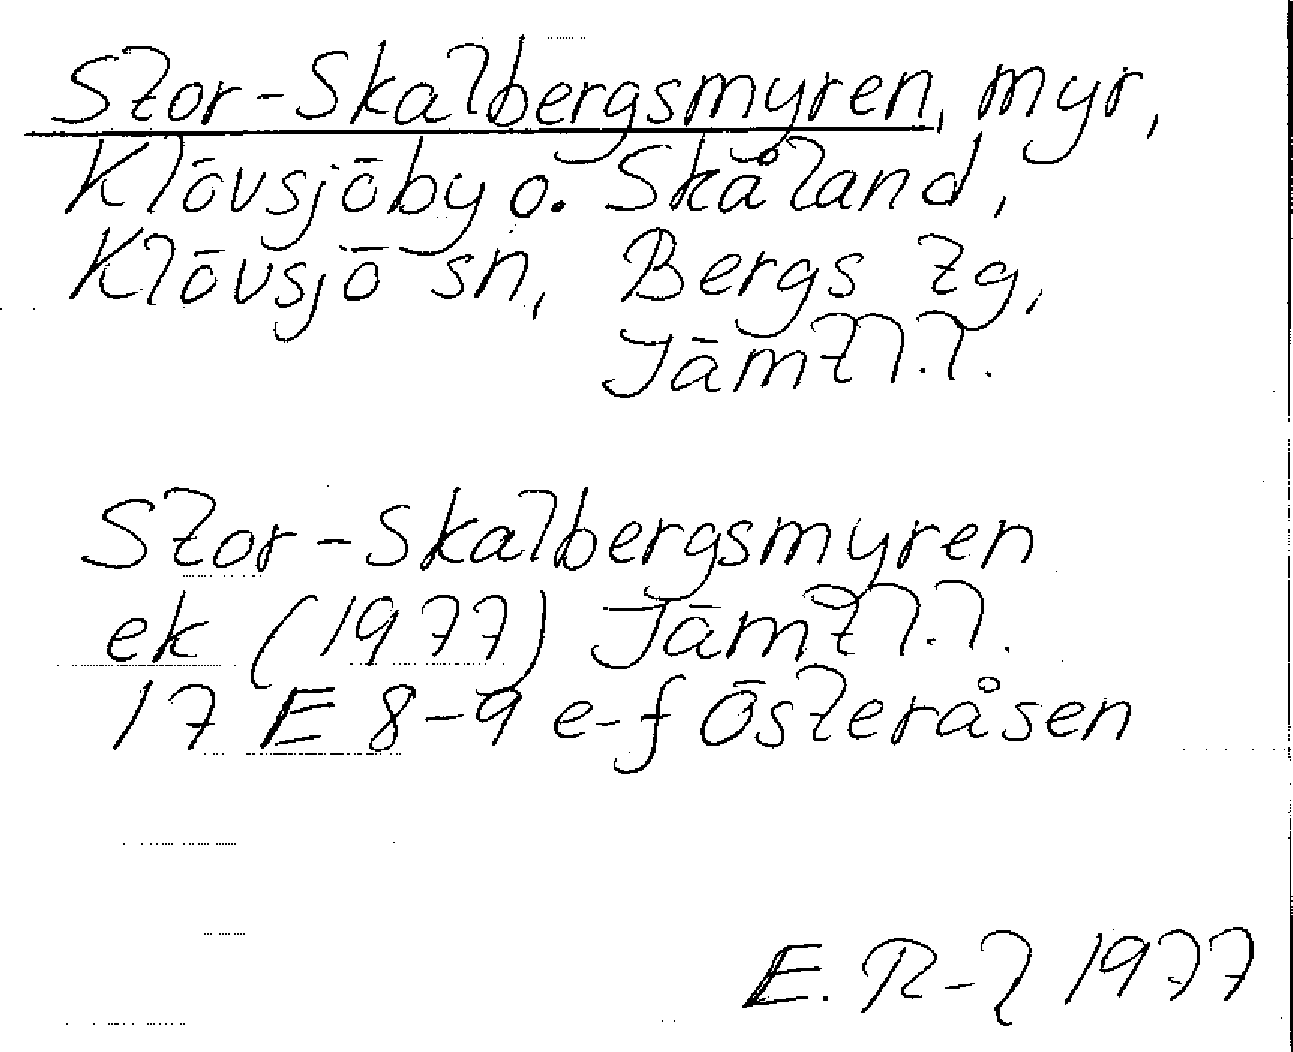 Stor-Skalbergsmyren, myr,
Klövsjöby o. Skåland,
Klövsjö sn, Bergs tg,
Jämtl.l.
Stor-Skalbergsmyren
ek (1977) Jämtl.l.
17 E 8-9 e-f Österåsen
E. R-l 1977